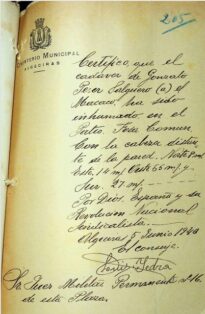 205
CEMENTERIO MUNICIPAL
ALGECIRAS
Certifico, que el
cadaver de Gonzalo
Pérez Salguero (a) el
ha sido
inhumado en el
Patio Fosa Comun
Con la cabeza distan
te de la pared. Norte 8 m
Este, 14 m Oeste 65 m y
Sur. 27 m.
Por Dios, España y su
Revolucion Nacional
Sindicalista.
Algeciras 5 Junio 1940
El conserje
Sr. Juez Militar Permanente nº 16.
de esta Plaza.